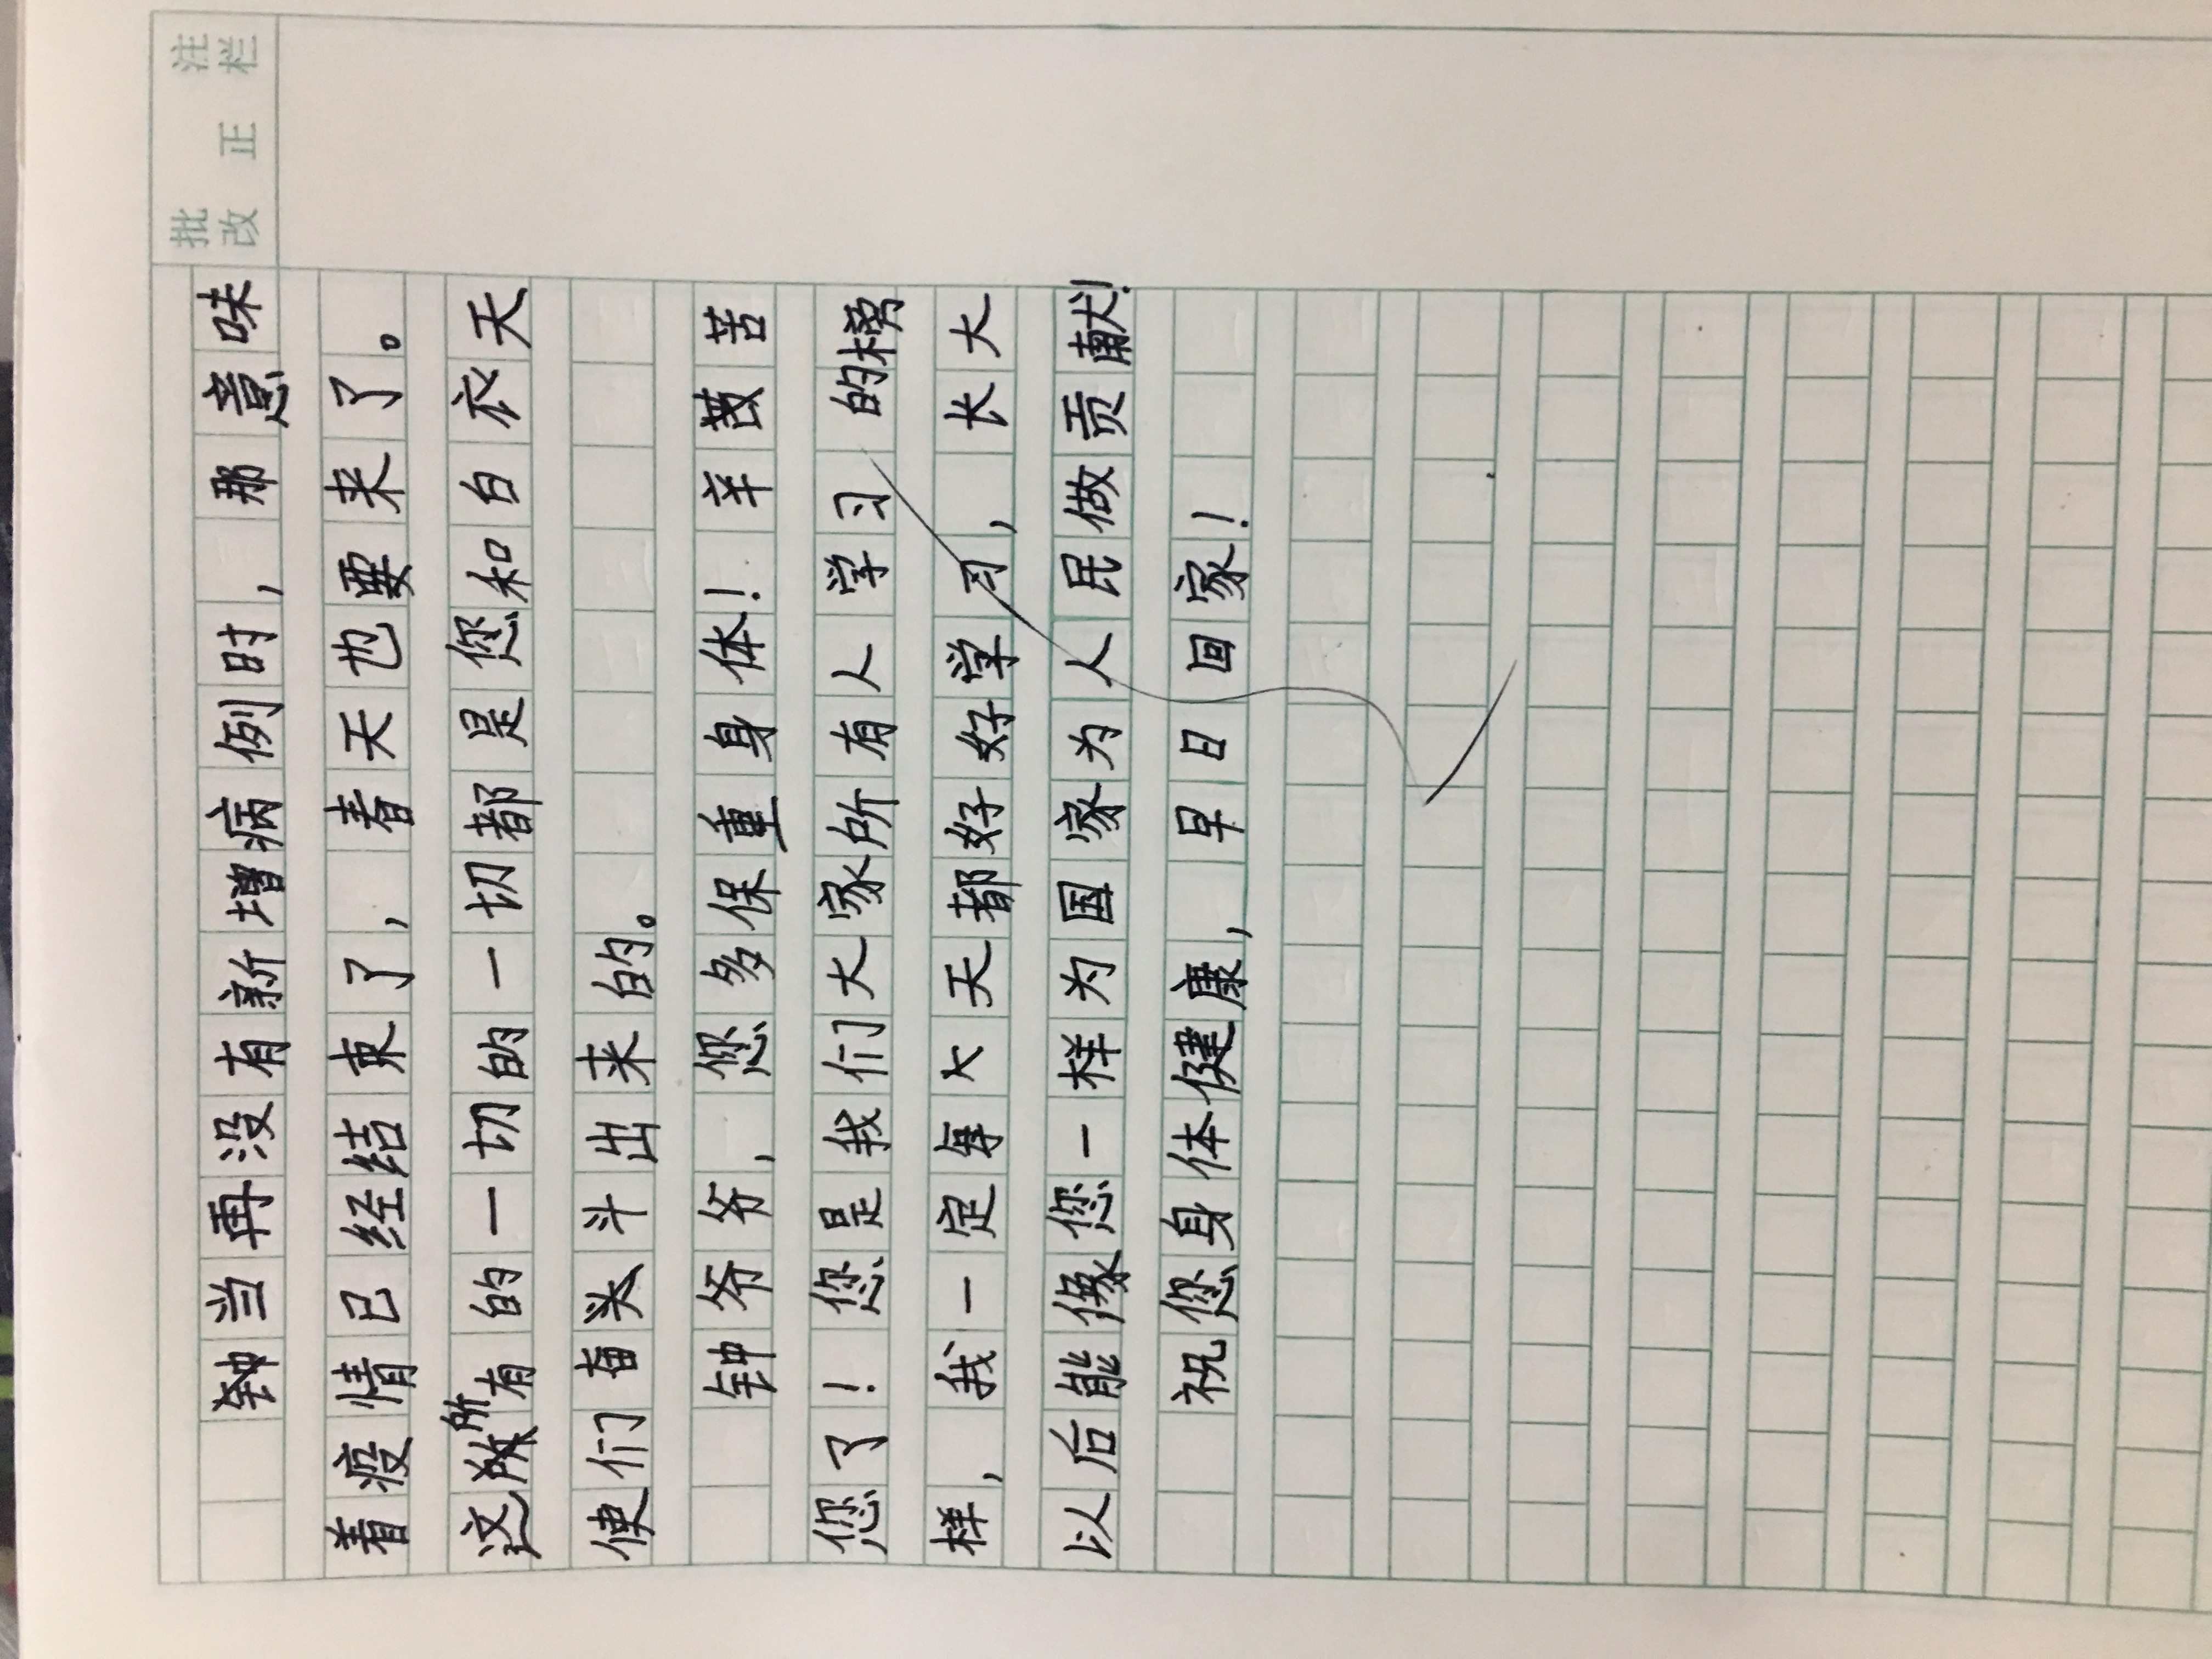 批 注
改 正 栏
当再没有新增病例时，那意味
着疫情已经结束了，春天也要来了。
这所有的一切的一切都是您和白衣天
使们奋头斗出来的。
钟爷爷，您多保重身体！辛苦
您了！您是我们大家所有人学习的榜
样，我一定每天都好好学习，长大
以后能像您一样为国家为人民做贡献！
祝您身体健康，早日回家！